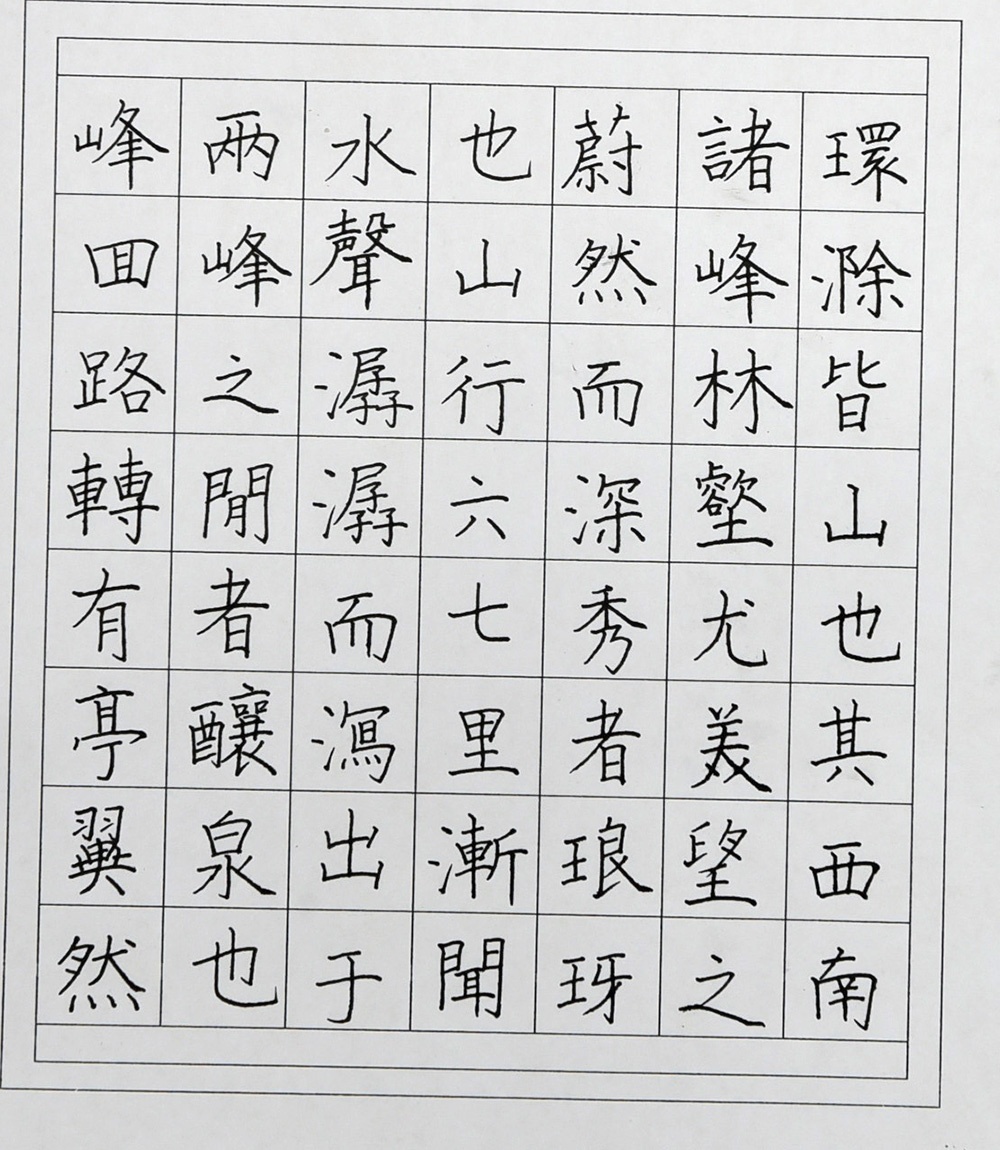 環滁皆山也其西南
諸峰林壑尤美望之
蔚然而深秀者琅玡
也山行六七里漸聞
水聲潺潺而瀉出于
兩峰之間者釀泉也
峰回路轉有亭翼然